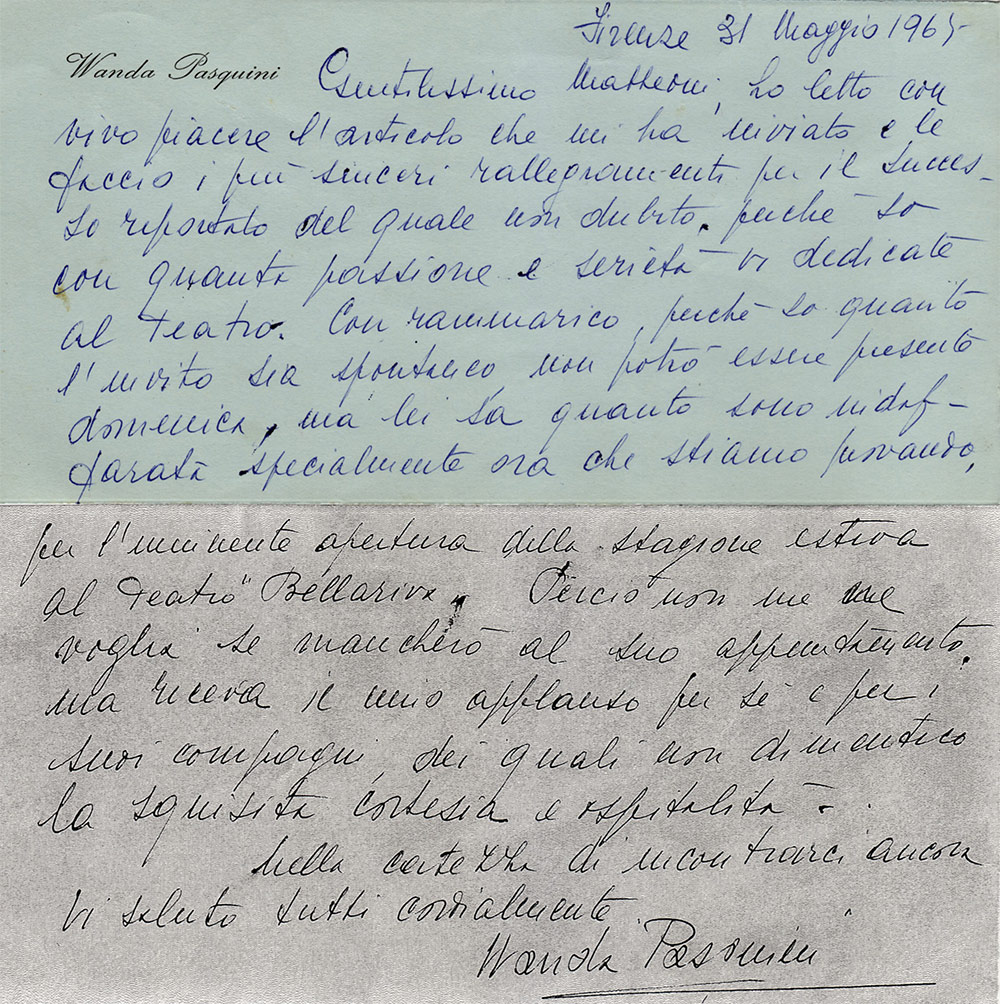 Firenze 31 Maggio 1965
Wanda Pasquini
Gentilissimo Matteoni, ho letto con
vivo piacere l'articolo che mi ha inviato e le
faccio i più sinceri rallegramenti per il succes-
so riportato del quale non dubito, perchè so
con quanta passione e serietà vi dedicate
al Teatro. Con rammarico, perchè so quanto
l'invito sia spontaneo, non potrò essere presente
domenica, ma lei sa quanto sono indaf-
farata specialmente ora che stiamo provando,
per l'imminente apertura della stagione estiva
al Teatro "Bellariva". Perciò non me ne
voglia se mancherò al suo appuntamento,
ma riceva il mio applauso per sè e per i
suoi compagni, dei quali non dimentico
la squisita cortesia e ospitalità -.
Nella certezza di incontrarci ancora
Vi saluto tutti cordialmente
Wanda Pasquini